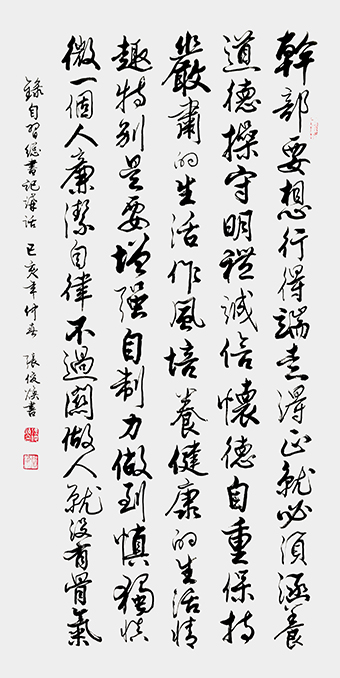 幹部要想行得端走得正就必須涵養
道德操守明禮誠信懷德自重保持
嚴肅的生活作風培養健康的生活情
趣特别是要增强自制力做到慎獨慎
微一個人廉潔自律不過關做人就没有骨氣
録自習總書記講話 己亥年仲春 張俊書